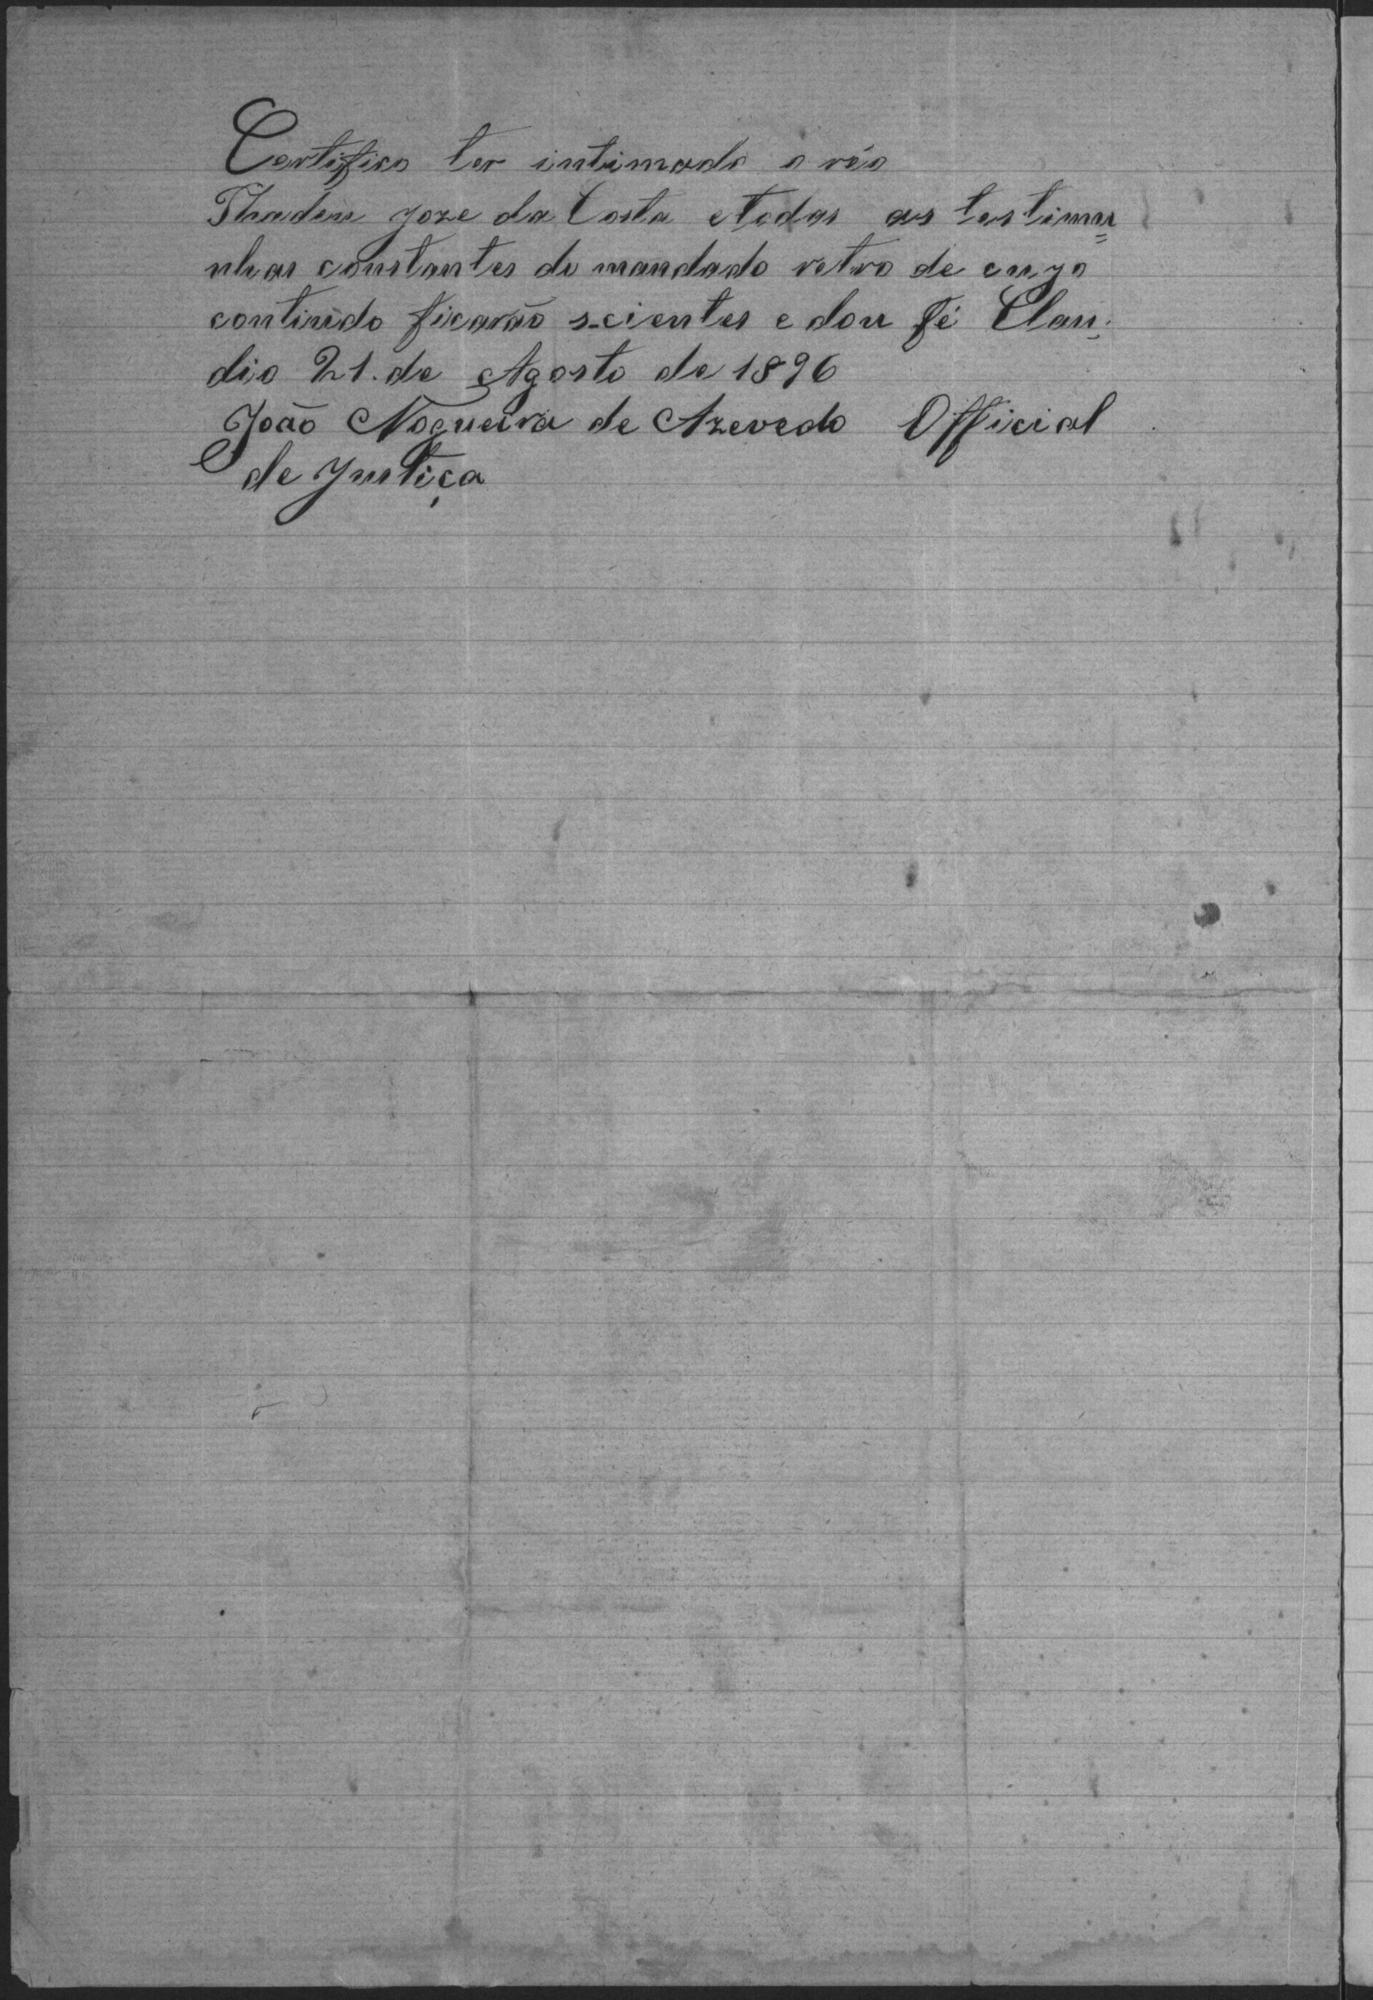 Certifico ter intimado o réo
Thadeu Joze da Costa e todas as testimu=
nhas constantes do mandado retro de cujo
contiúdo ficarão scientes e dou fé Clau-
dio 21. de Agosto de 1896
João Nogueira de Azevedo Official
de Justiça